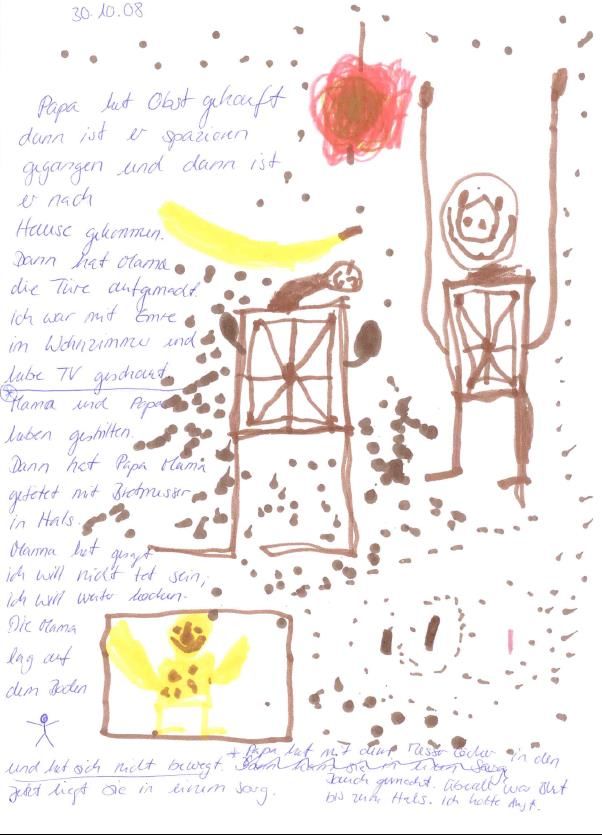 30.10.08
Papa hat Obst gekauft
dann ist er spazieren
gegangen und dann ist
er nach
Hause gekommen.
Dann hat Mama
die Türe aufgemacht.
Ich war mit Emre
im Wohnzimmer und
habe TV geschaut.
Mama und Papa
haben gestritten.
Dann hat Papa Mama
getötet mit Brotmesser
in Hals.
Mama hat gesagt
ich will nicht tot sein,
ich will weiter kochen.
Die Mama
lag auf
dem Boden
und hat sich nicht bewegt.
Jetzt liegt sie in einem Sarg.
* Papa hat mit dem Messer Löcher in den
Bauch gemacht. Überall war Blut
bis zum Hals. Ich hatte Angst.